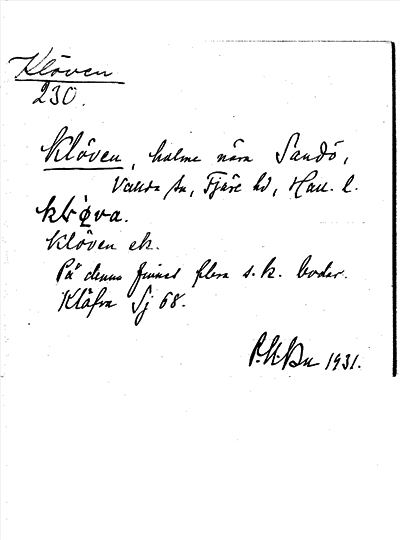 Klöven
230.
Klöven, holme nära Sandö,
Vallda sn, Fjäre hd, Hall. l.
Klöven ek.
På denna finnes flera s.k. bodar.
Klåfva Sj 68.
1931.